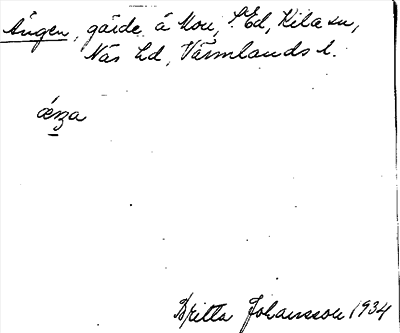 Ängen, gärde å Mon, S. Ed, Kila sn,
Näs hd, Värmlands l.
Britta Johansson 1934